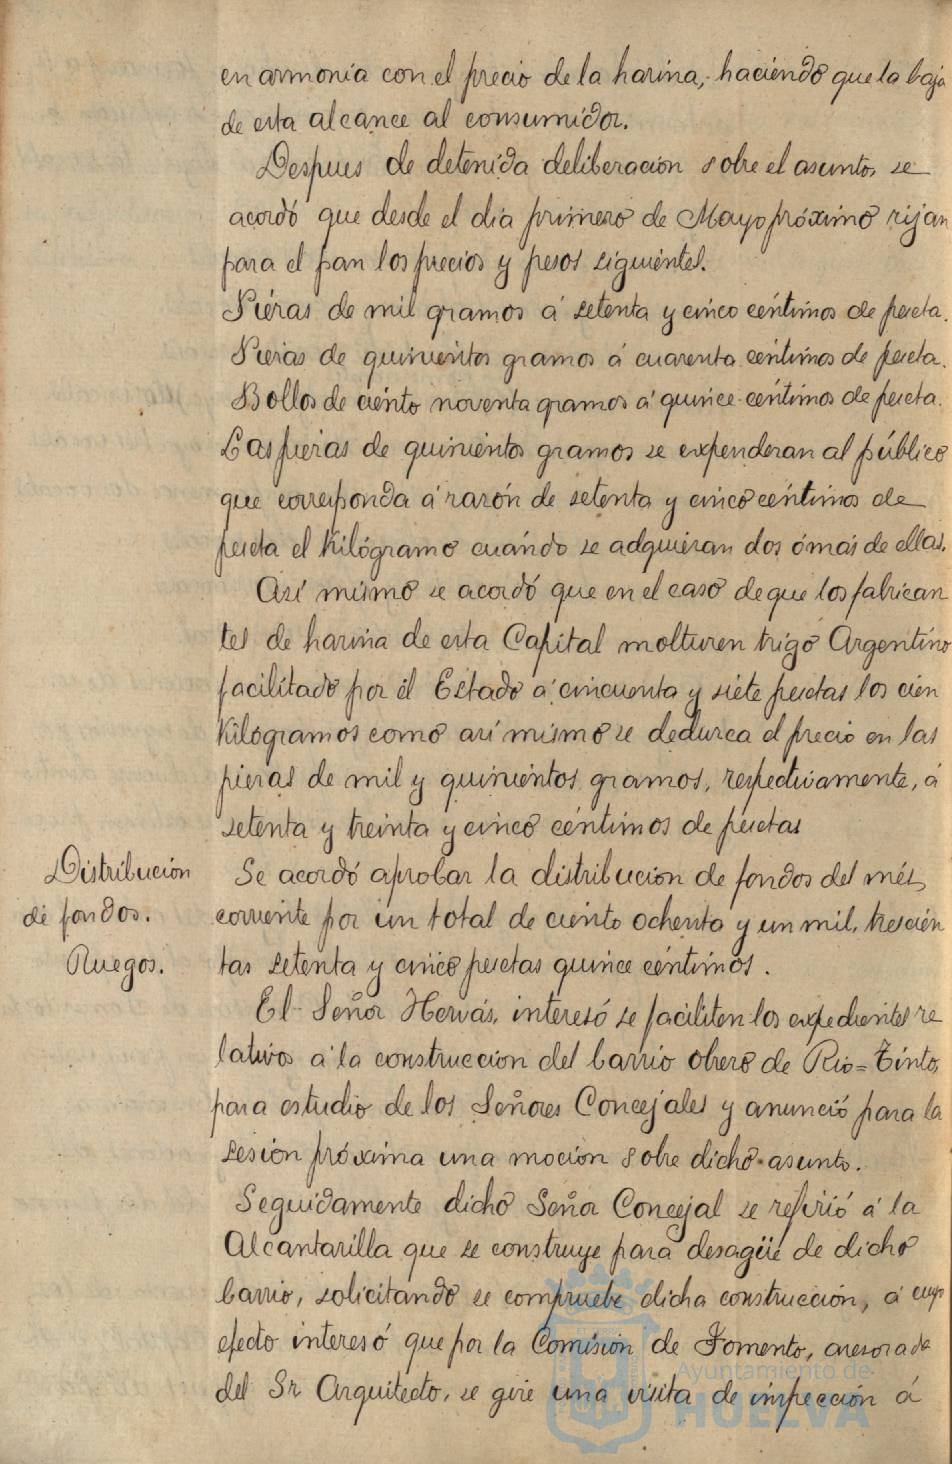 en armonía con el precio de la harina, haciendo que la baja
de esta alcance al consumidor.
Despues de detenida deliberación sobre el asunto, se
acordó que desde el dia primero de Mayo próximo rijan
para el pan los precios y pesos siguientes.
Piezas de mil gramos á setenta y cinco céntimos de peseta.
Piezas de quinientos gramos á cuarenta céntimos de peseta.
Bollos de ciento noventa gramos á quince céntimos de peseta.
Las piezas de quinientos gramos se expenderan al público
que corresponda á razón de setenta y cinco céntimos de
peseta el Kilógramo cuándo se adquieran dos ó más de ellas.
Así mismo se acordó que en el caso de que los fabrican
tes de harina de esta Capital molturen trigo Argentino
facilitado por él Estado á cincuenta y siete pesetas los cien
Kilógramos como así mismo se deduzca el precio en las
piezas de mil y quinientos gramos, respectivamente, á
setenta y treinta y cinco céntimos de pesetas
Distribución
de fondos.
Se acordó aprobar la distribucion de fondos del més,
corriente por un total de ciento ochenta y un mil, trescien
tas setenta y cinco pesetas quince céntimos.
Ruegos.
El Señor Hervás, interesó se faciliten los expedientes re
lativos á la construccion del barrio obrero de Rio=Tinto,
para estudio de los Señores Concejales y anunció para la
sesion próxima una mocion sobre dicho asunto.
Seguidamente dicho Señor Concejal se refirió á la
Alcantarilla que se construye para desagüe de dicho
barrio, solicitando se compruebe dicha construccion, á cuyo
efecto interesó que por la Comisión de Fomento, asesorada
del Sr Arquitecto, se gire una visita de inspección á
Ayuntamiento de
HUELVA